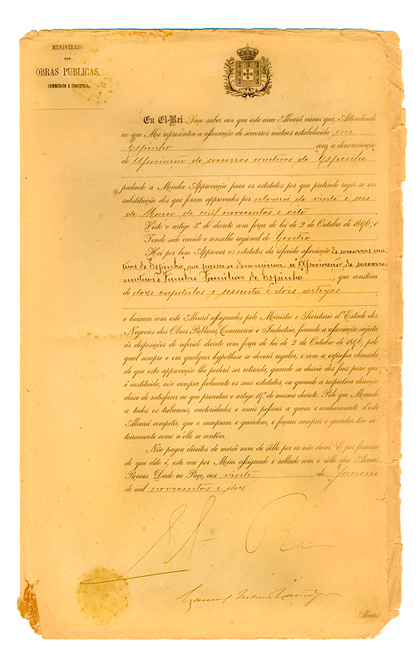 MINISTERIO
DAS
OBRAS PUBLICAS,
COMMERCIO E INDUSTRIA
Eu El-Rei Faço saber aos que este meu Alvará virem que, Attendendo
ao que Me representou a associação de soccorros mutuos estabelecida em
Espinho com a denominação
de Associação de soccorros mutuos de Espinho
pedindo a Minha Approvação para os estatutos por que pretende reger-se em
substituição dos que foram approvados por alvará de vinte e seis
de Março de mil novecentos e oito
Visto o artigo 3.º do decreto com força de lei de 2 de Outubro de 1896, e
Tendo sido ouvido o conselho regional do Centro
Hei por bem Approvar os estatutos da referida associação de soccorros mu-
tuos de Espinho, que passa a denominar-se Associação de soccorros
mutuos e Funebre Familiar de Espinho, que constam
de doze capitulos e sessenta e dois artigos
e baixam com este Alvará assignados pelo Ministro e Secretario d'Estado dos
Negocios das Obras Publicas, Commercio e Industria, ficando a associação sujeita
ás disposições do referido decreto com força de lei de 2 de Outubro de 1896, pelo
qual sempre e em qualquer hypothese se deverá regular, e com a expressa clausula
de que esta approvação lhe poderá ser retirada, quando se desvie dos fins para que
é instituida, não cumpra fielmente os seus estatutos, ou quando a respectiva direcção
deixe de satisfazer ao que preceitua o artigo 19.º do mesmo decreto. Pelo que Mando
a todos os tribunaes, auctoridades e mais pessoas a quem o conhecimento d'este
Alvará competir, que o cumpram e guardem, e façam cumprir e guardar tão in-
teiramente como n'elle se contém.
Não pagou direitos de mercê nem de sêllo por os não dever. E por firmeza
do que dito é, este vae por Mim assignado e sellado com o sêllo das Armas
Reaes. Dado no Paço, aos vinte de Janeiro
de mil novecentos e dez
El-Rei
Alvará